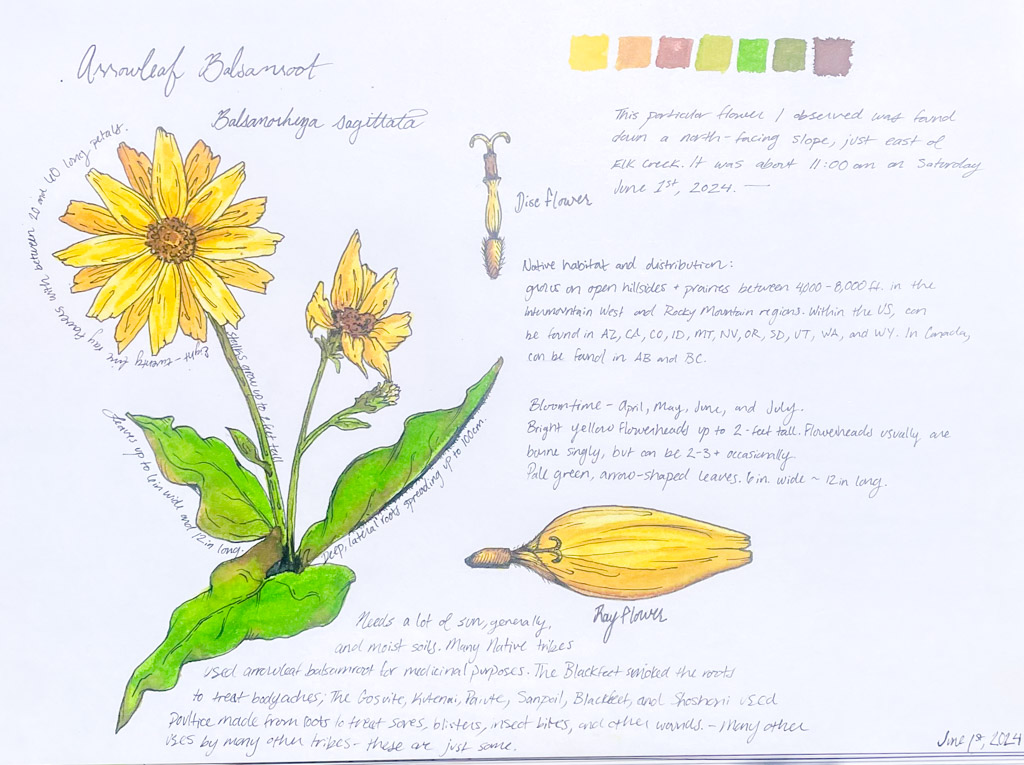 Arrowleaf Balsamroot
Balsamorhiza sagittata
This particular flower I observed was found
down a north-facing slope, just east of
Elk Creek. It was about 11:00 am on Saturday
June 1st, 2024. —
Eight-twenty five ray flowers with between 20 and 40 long petals.
Disc flower
Native habitat and distribution:
grows on open hillsides + prairies between 4,000-8,000 ft. in the
Intermountain West and Rocky Mountain regions. Within the US, can
be found in AZ, CA, CO, ID, MT, NV, OR, SD, UT, WA, and WY. In Canada,
can be found in AB and BC.
stalks grow up to 2 feet tall
Leaves up to 6 in wide and 12 in long.
Deep, lateral roots spreading up to 100cm.
Bloomtime - April, May, June, and July.
Bright yellow flowerheads up to 2-feet tall. Flowerheads usually are
borne singly, but can be 2-3+ occasionally
Pale green, arrow-shaped leaves. 6 in. wide ~ 12 in long.
Ray Flower
Needs a lot of sun, generally,
and moist soils. Many Native tribes
used arrowleaf balsamroot for medicinal purposes. The Blackfeet smoked the roots
to treat bodyaches; The Gosuite, Kutenai, Paiute, Sanpoil, Blackfeet, and Shoshoni used
Poultice made from roots to treat sores, blisters, insect bites, and other wounds. - Many other
uses by many other tribes - these are just some.
June 1st, 2024